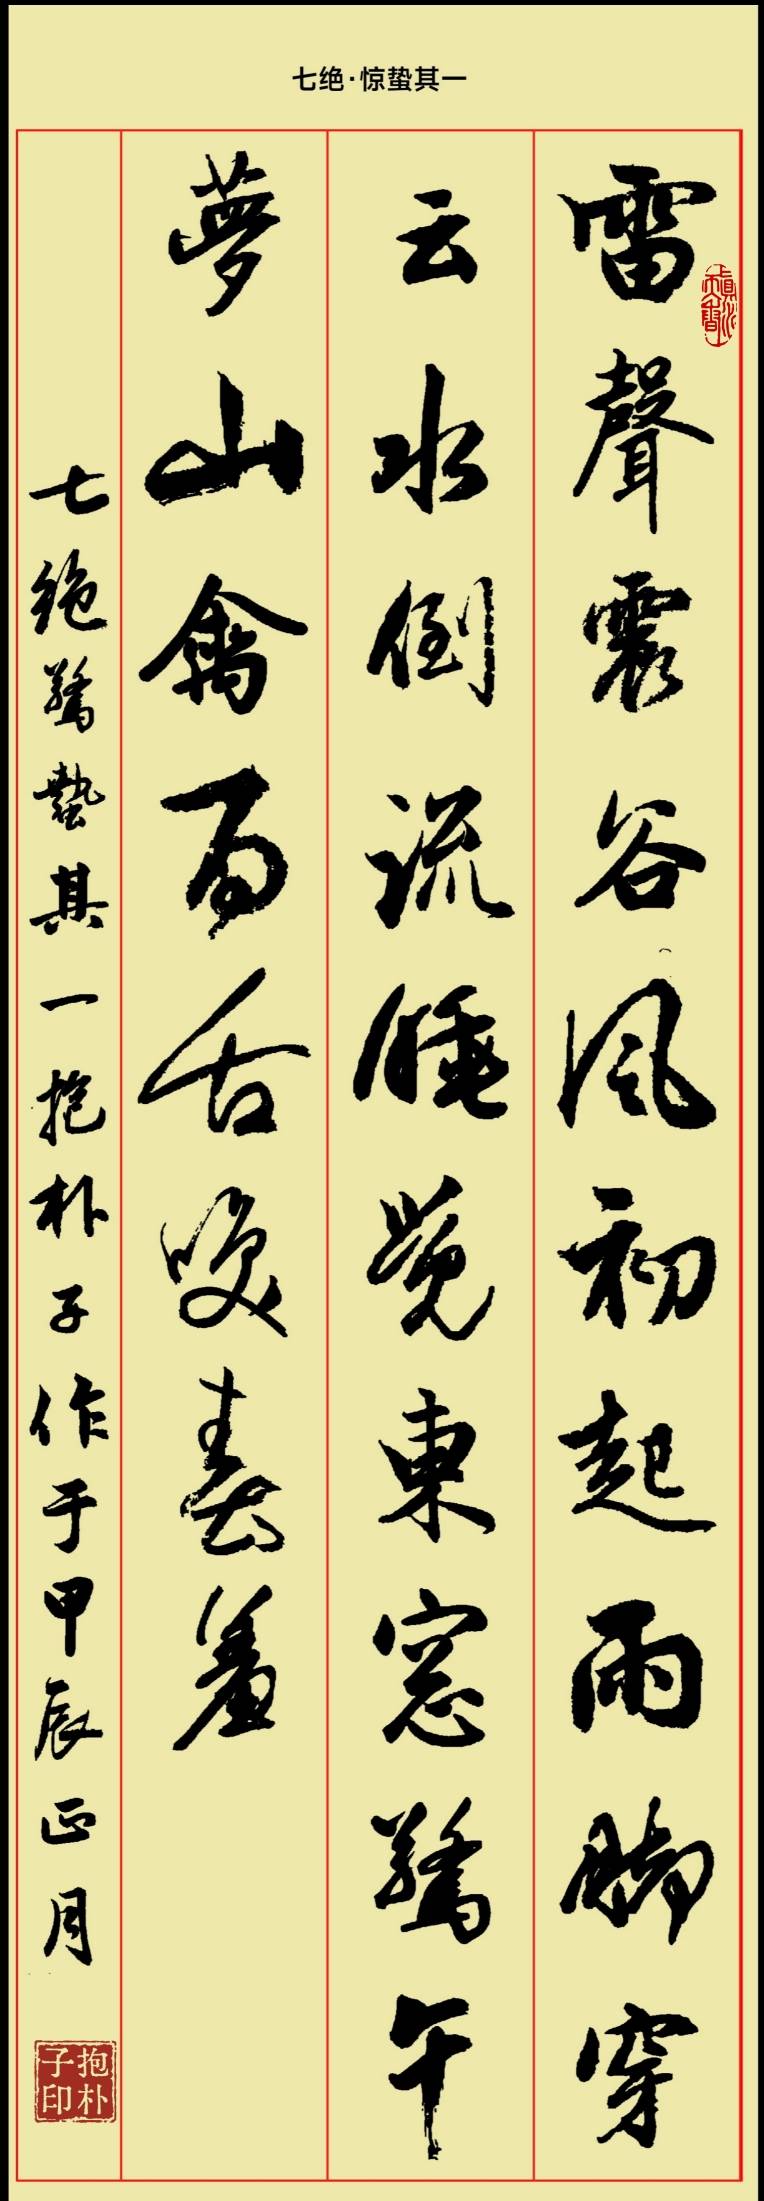 七绝·惊蛰其一
雷聲震谷风初起雨脚穿
云水倒流睡觉東窓驚午
夢山禽百舌唤春羞
七絶驚蟄其一抱朴子作于甲辰正月
抱朴
子印